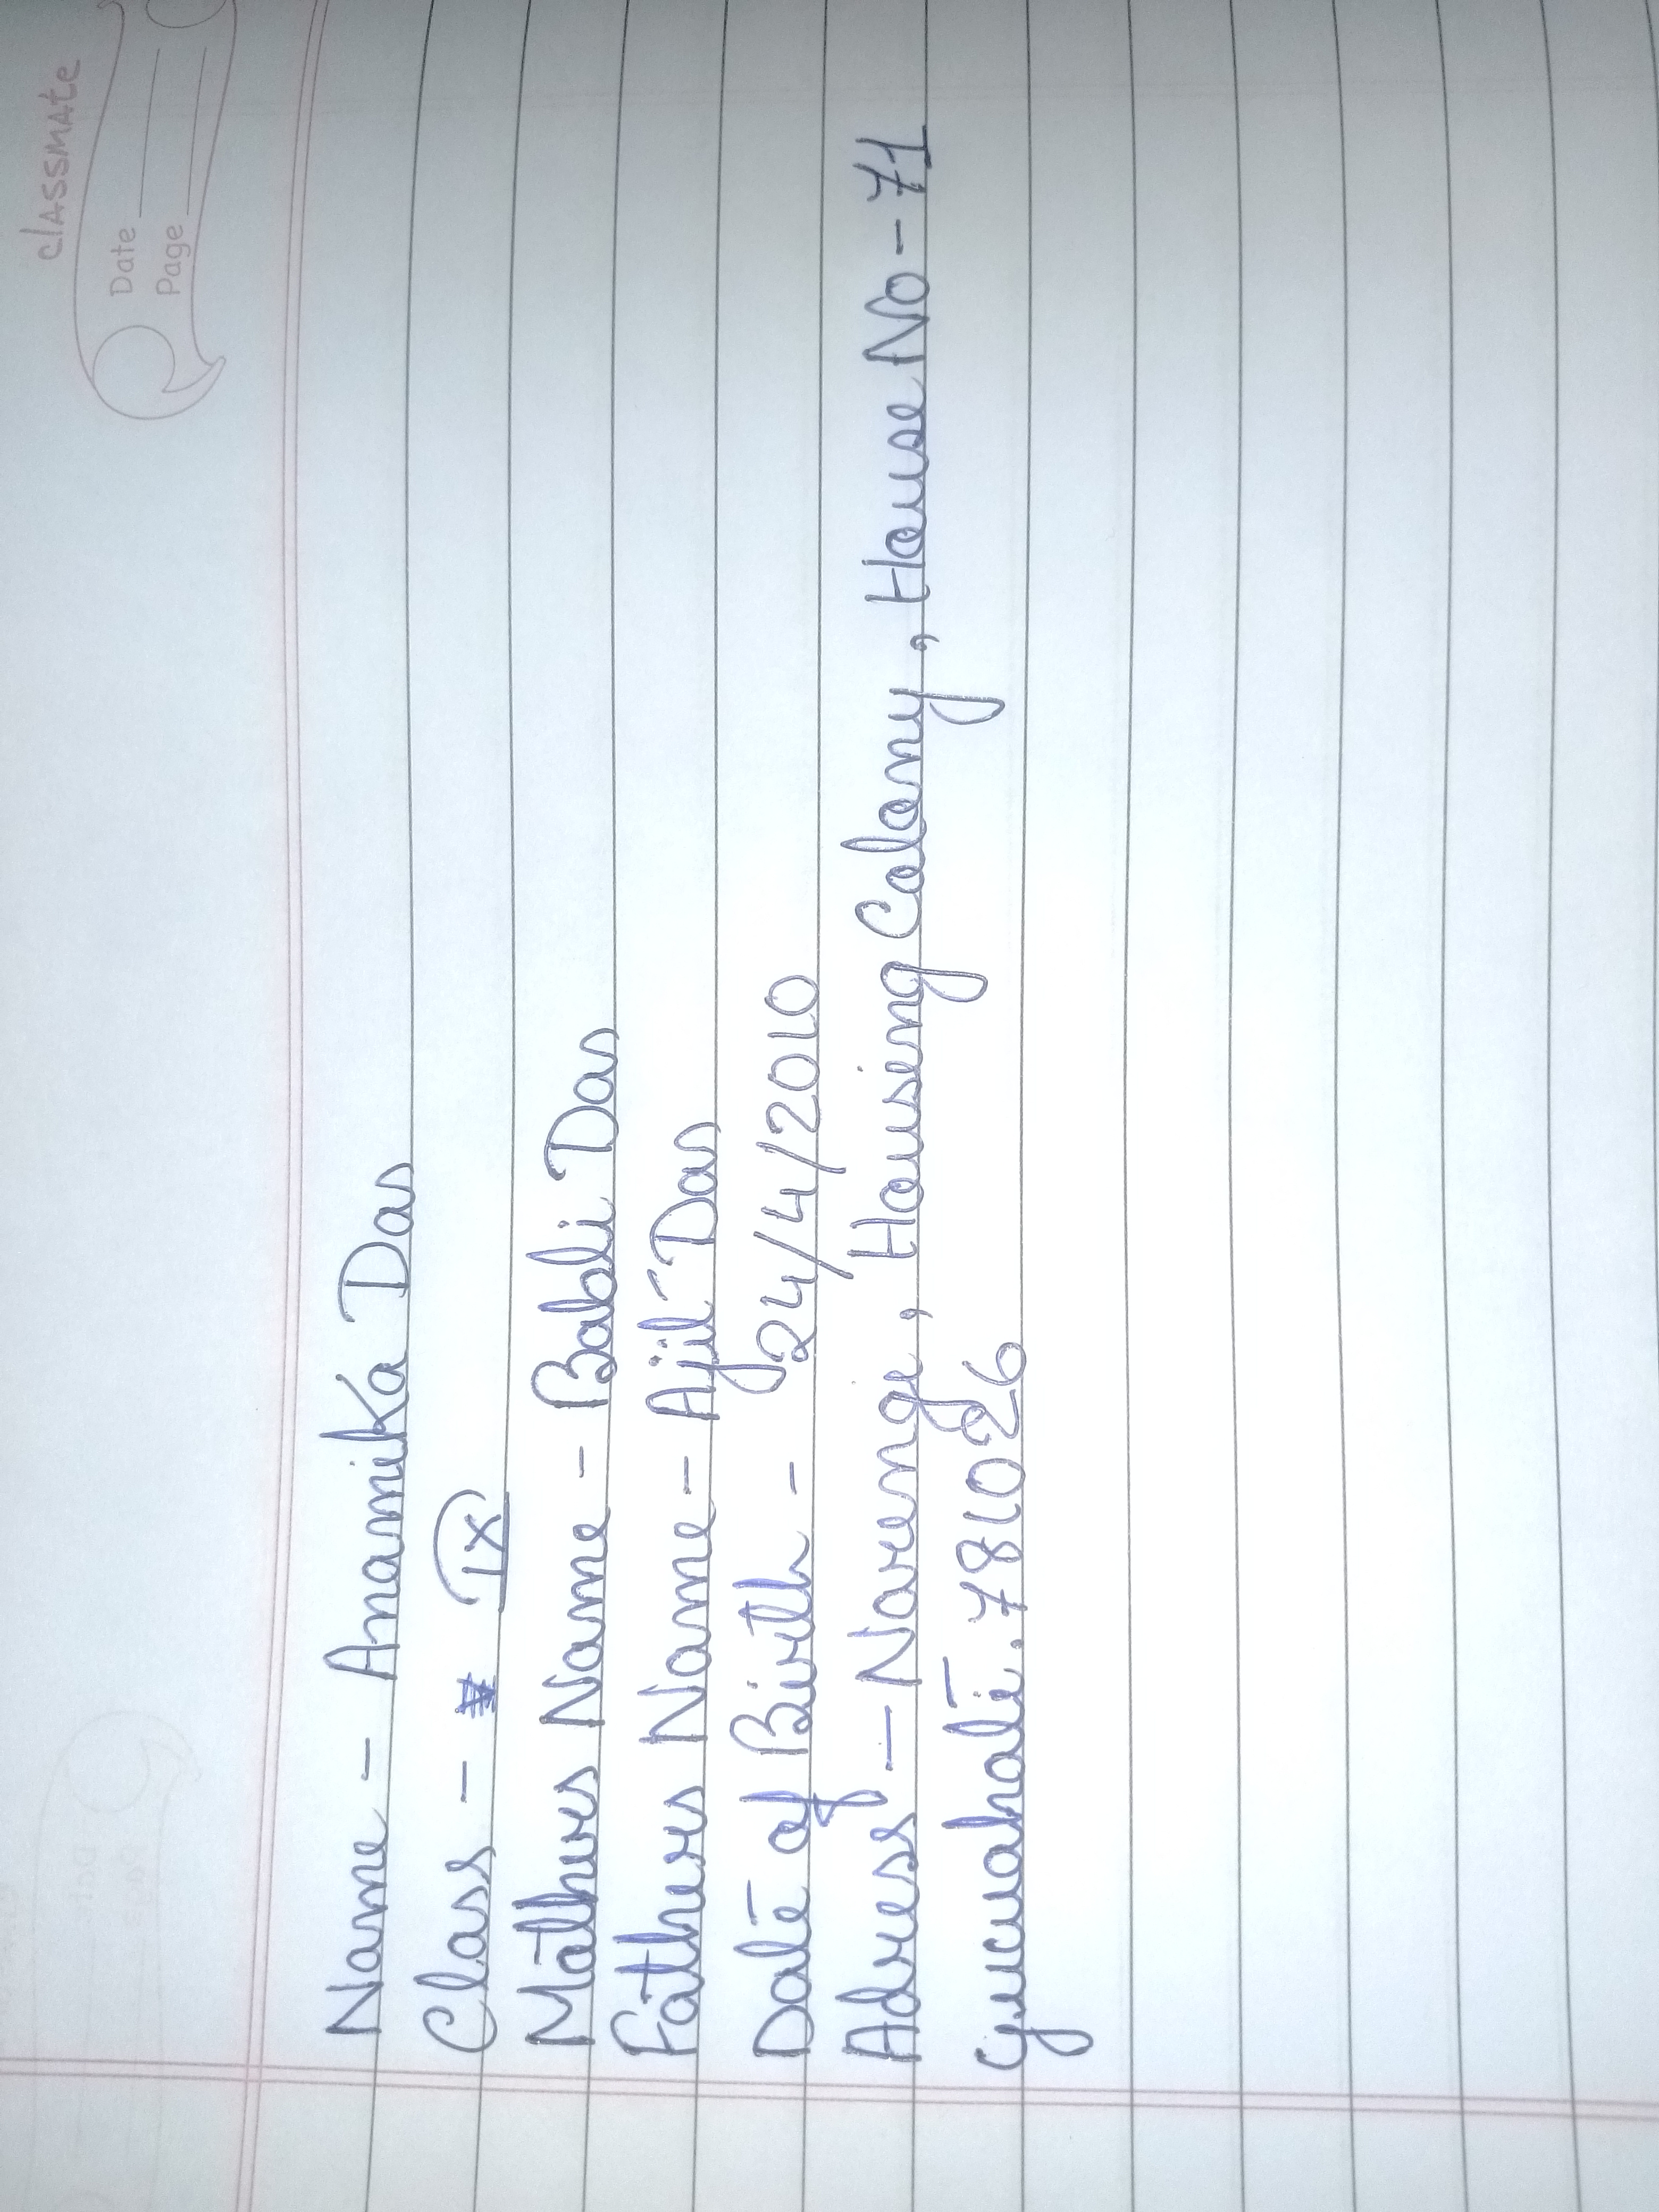 classmate
Date
Page
Name - Anamika Das
Class - IX
Mothers Name - Babli Das
Fathers Name - Ajit Das
Date of Birth - 24/4/2010
Adress - Narengi, Housing Colony, House No - 71
Guwahati. 781026